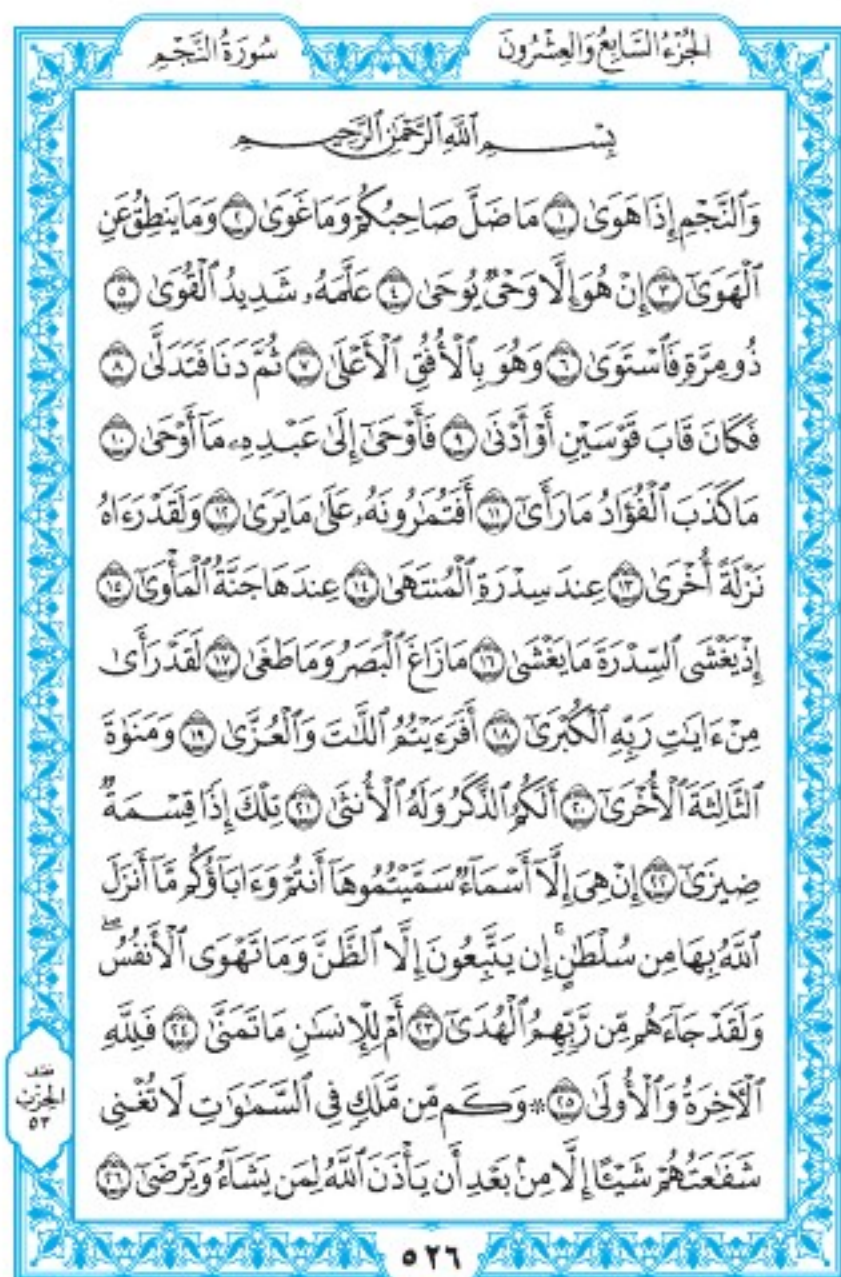 الجُزْءُ السَّابِعُ وَالعِشْرُونَ سُورَةُ النَّجْمِ
بِسْمِ ٱللَّهِ ٱلرَّحْمَٰنِ ٱلرَّحِيمِ
وَٱلنَّجْمِ إِذَا هَوَىٰ ١ مَا ضَلَّ صَاحِبُكُمْ وَمَا غَوَىٰ ٢ وَمَا يَنطِقُ عَنِ
ٱلْهَوَىٰٓ ٣ إِنْ هُوَ إِلَّا وَحْىٌ يُوحَىٰ ٤ عَلَّمَهُۥ شَدِيدُ ٱلْقُوَىٰ ٥
ذُو مِرَّةٍ فَٱسْتَوَىٰ ٦ وَهُوَ بِٱلْأُفُقِ ٱلْأَعْلَىٰ ٧ ثُمَّ دَنَا فَتَدَلَّىٰ ٨
فَكَانَ قَابَ قَوْسَيْنِ أَوْ أَدْنَىٰ ٩ فَأَوْحَىٰٓ إِلَىٰ عَبْدِهِۦ مَآ أَوْحَىٰ ١٠
مَا كَذَبَ ٱلْفُؤَادُ مَا رَأَىٰٓ ١١ أَفَتُمَٰرُونَهُۥ عَلَىٰ مَا يَرَىٰ ١٢ وَلَقَدْ رَءَاهُ
نَزْلَةً أُخْرَىٰ ١٣ عِندَ سِدْرَةِ ٱلْمُنتَهَىٰ ١٤ عِندَهَا جَنَّةُ ٱلْمَأْوَىٰٓ ١٥
إِذْ يَغْشَى ٱلسِّدْرَةَ مَا يَغْشَىٰ ١٦ مَا زَاغَ ٱلْبَصَرُ وَمَا طَغَىٰ ١٧ لَقَدْ رَأَىٰ
مِنْ ءَايَٰتِ رَبِّهِ ٱلْكُبْرَىٰٓ ١٨ أَفَرَءَيْتُمُ ٱللَّٰتَ وَٱلْعُزَّىٰ ١٩ وَمَنَوٰةَ
ٱلثَّالِثَةَ ٱلْأُخْرَىٰٓ ٢٠ أَلَكُمُ ٱلذَّكَرُ وَلَهُ ٱلْأُنثَىٰ ٢١ تِلْكَ إِذًا قِسْمَةٌ
ضِيزَىٰٓ ٢٢ إِنْ هِىَ إِلَّآ أَسْمَآءٌ سَمَّيْتُمُوهَآ أَنتُمْ وَءَابَآؤُكُم مَّآ أَنزَلَ
ٱللَّهُ بِهَا مِن سُلْطَٰنٍ ۚ إِن يَتَّبِعُونَ إِلَّا ٱلظَّنَّ وَمَا تَهْوَى ٱلْأَنفُسُ ۖ
وَلَقَدْ جَآءَهُم مِّن رَّبِّهِمُ ٱلْهُدَىٰٓ ٢٣ أَمْ لِلْإِنسَٰنِ مَا تَمَنَّىٰ ٢٤ فَلِلَّهِ
ٱلْءَاخِرَةُ وَٱلْأُولَىٰ ٢٥ ۞ وَكَم مِّن مَّلَكٍ فِى ٱلسَّمَٰوَٰتِ لَا تُغْنِى
شَفَٰعَتُهُمْ شَيْـًٔا إِلَّا مِنۢ بَعْدِ أَن يَأْذَنَ ٱللَّهُ لِمَن يَشَآءُ وَيَرْضَىٰٓ ٢٦
الحِزْبِ
٥٣
٥٢٦